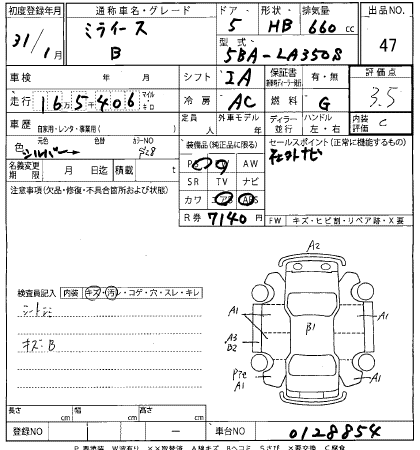 初度登録年月 通称車名・グレード ドア 形状 排気量 出品NO.
31/1月 ミライース B 5 HB 660 cc 47
型式 5BA-LA350S
車検 年 月 シフト IA 保証書 有・無 評価点
走行 16万5千406 マイル キロ 冷房 AC 燃料 G 3.5
車歴 自家用・レンタ・事業用( ) 定員 人 外車モデル 年 ディーラー 並行 ハンドル 左・右 内装評価 C
色 元色 シルバー 色替 カラーNO S28
装備品(純正品に限る) セールスポイント(正常に機能するもの)
名義変更期限 月 日迄 積載 t
PS PW AW
SR TV ナビ
カワ エアB ABS
社外ナビ
注意事項(欠品・修復・不具合箇所および状態)
R券 7140 円 FW キズ・ヒビ割・リペア跡・X要
検査員記入 内装 キズ・汚レ・コゲ・穴・スレ・キレ
キズ:B
A2
A1 A1
A3 B2 B1
A1 A1
長さ cm 幅 cm 高さ cm
登録NO ー 車台NO 0128854
P要塗装 W波有り XX取替済 A線キズ Bヘコミ Sさび X要交換 C腐食